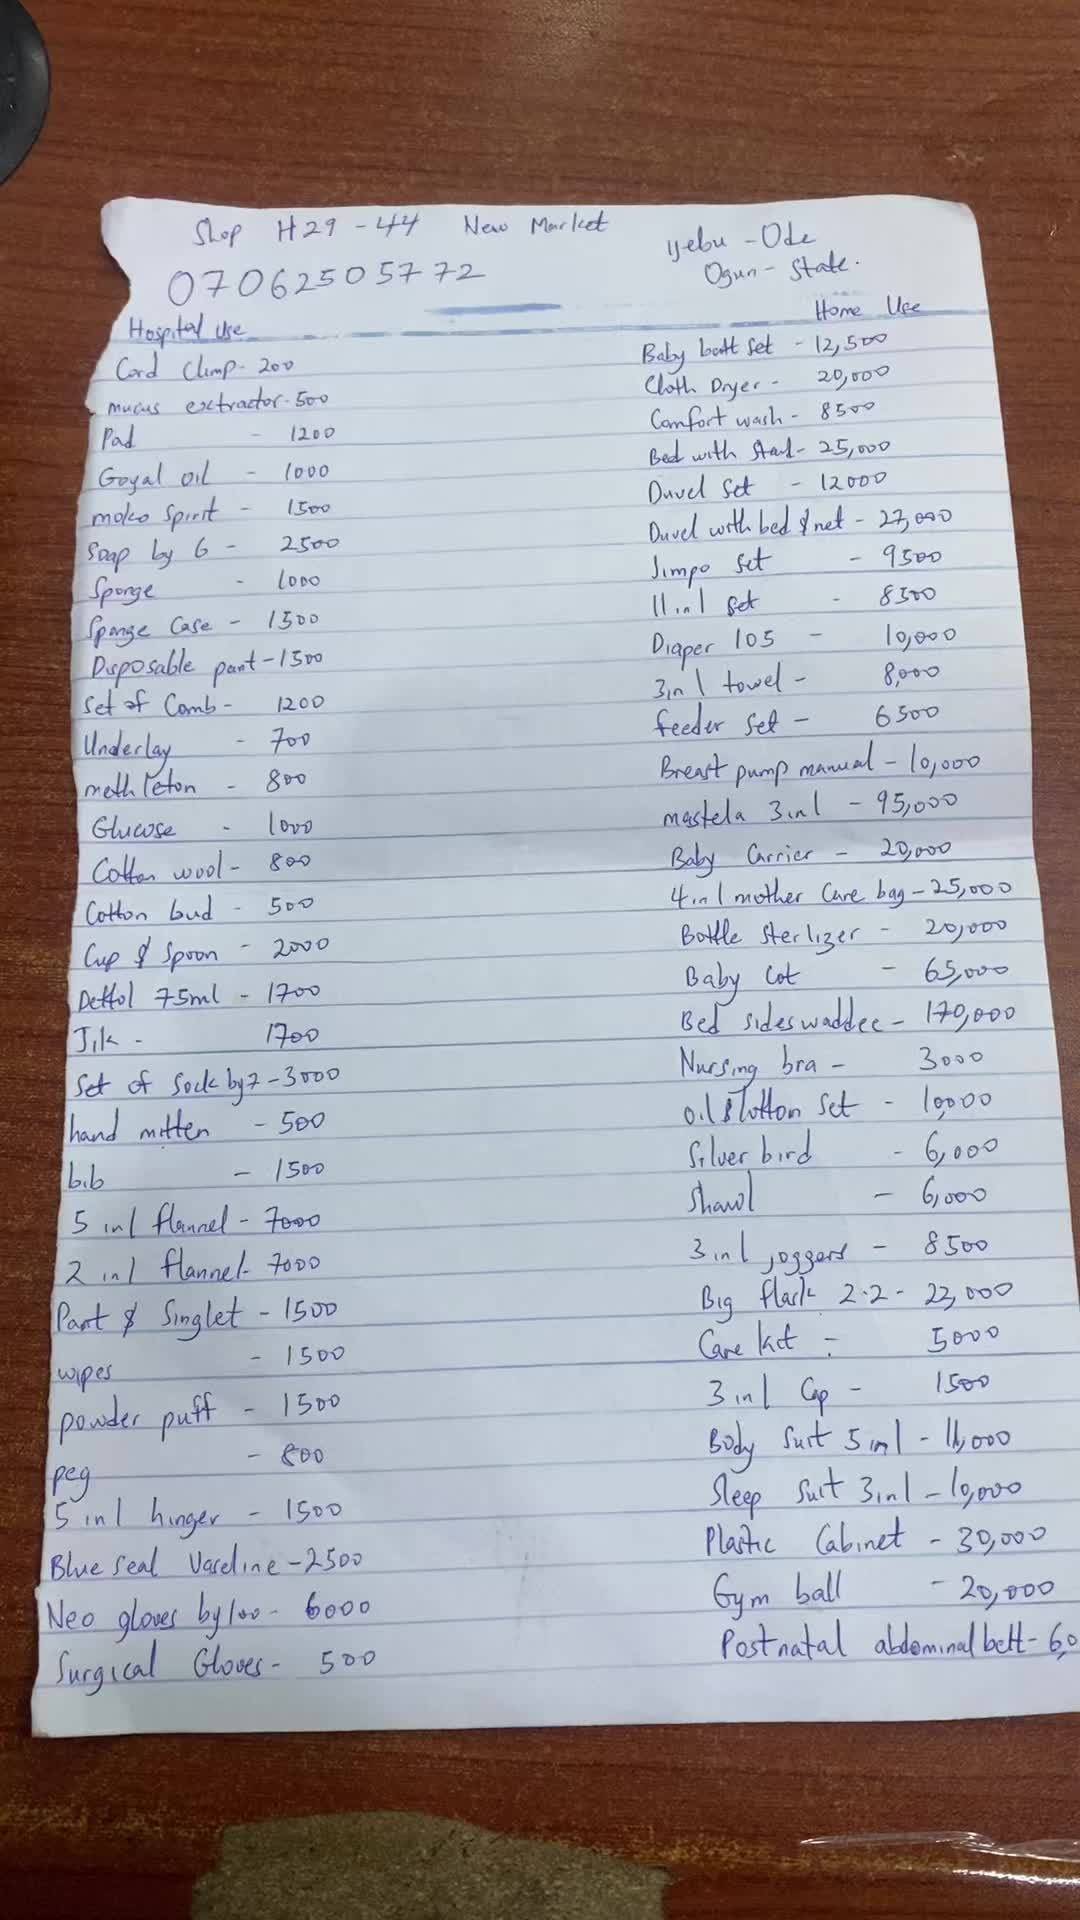 Shop H29-44 New Market
Ijebu-Ode
Ogun-State.
07062505772
Hospital Use
Cord Clmp-200
mucus extractor-500
Pad - 1200
Goyal oil - 1000
moko Spirit - 1500
Soap by 6 - 2500
Sponge - 1000
Sponge Case - 1500
Disposable pant-1500
Set of Comb- 1200
Underlay - 700
meth leton - 800
Glucose - 1000
Cotton wool- 800
Cotton bud - 500
Cup & Spoon - 2000
Dettol 75ml - 1700
Jik - 1700
Set of Sock by7-3000
hand mitten - 500
bib - 1500
5 in 1 flannel - 7000
2 in 1 flannel- 7000
Pant & Singlet - 1500
wipes - 1500
powder puff - 1500
peg - 800
5 in 1 hinger - 1500
Blue seal Vaseline -2500
Neo gloves by100- 6000
Surgical Gloves- 500
Home Use
Baby batt set - 12,500
Cloth Dryer - 20,000
Comfort wash- 8500
Bed with stand- 25,000
Duvel Set - 12000
Duvel with bed & net - 27,000
Jimpo set - 9500
11 in 1 set - 8500
Diaper 105 - 10,000
3 in 1 towel - 8,000
feeder set - 6500
Breast pump manual - 10,000
mastela 3 in 1 - 95,000
Baby Carrier - 20,000
4 in 1 mother Care bag-25,000
Bottle sterlizer - 20,000
Baby Cot - 65,000
Bed sideswaddee - 170,000
Nursing bra - 3000
oil & lotton set - 10,000
Silver bird - 6,000
Shawl - 6,000
3 in 1 joggers - 8500
Big flask 2.2- 23,000
Care kit - 5000
3 in 1 Cap - 1500
Body suit 5 in 1 - 11,000
Sleep suit 3 in 1 - 10,000
Plastic Cabinet - 30,000
Gym ball - 20,000
Postnatal abdominal belt-